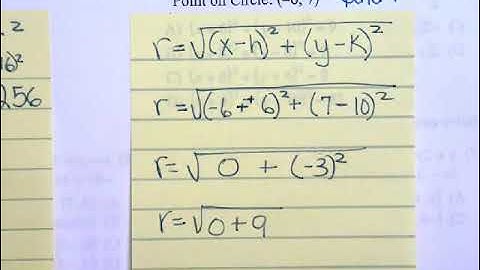 Point on Circle: (–6, 7)
2
16)²
256
r=√(x-h)² + (y-k)²
r=√(-6 + 6)² + (7-10)²
r=√0 + (-3)²
r=√0+9